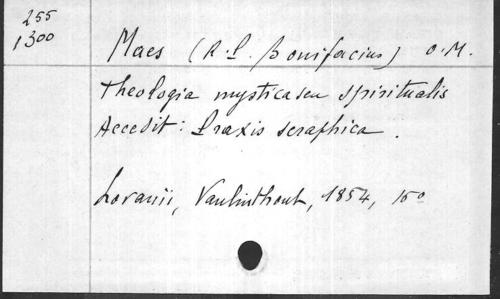 255
1300
Maes (R. P. Bonifacius) O.M.
Theologia mystica seu spiritualis
Accedit: Praxis seraphica.
Lovanii, Vanlinthout, 1854, 16°